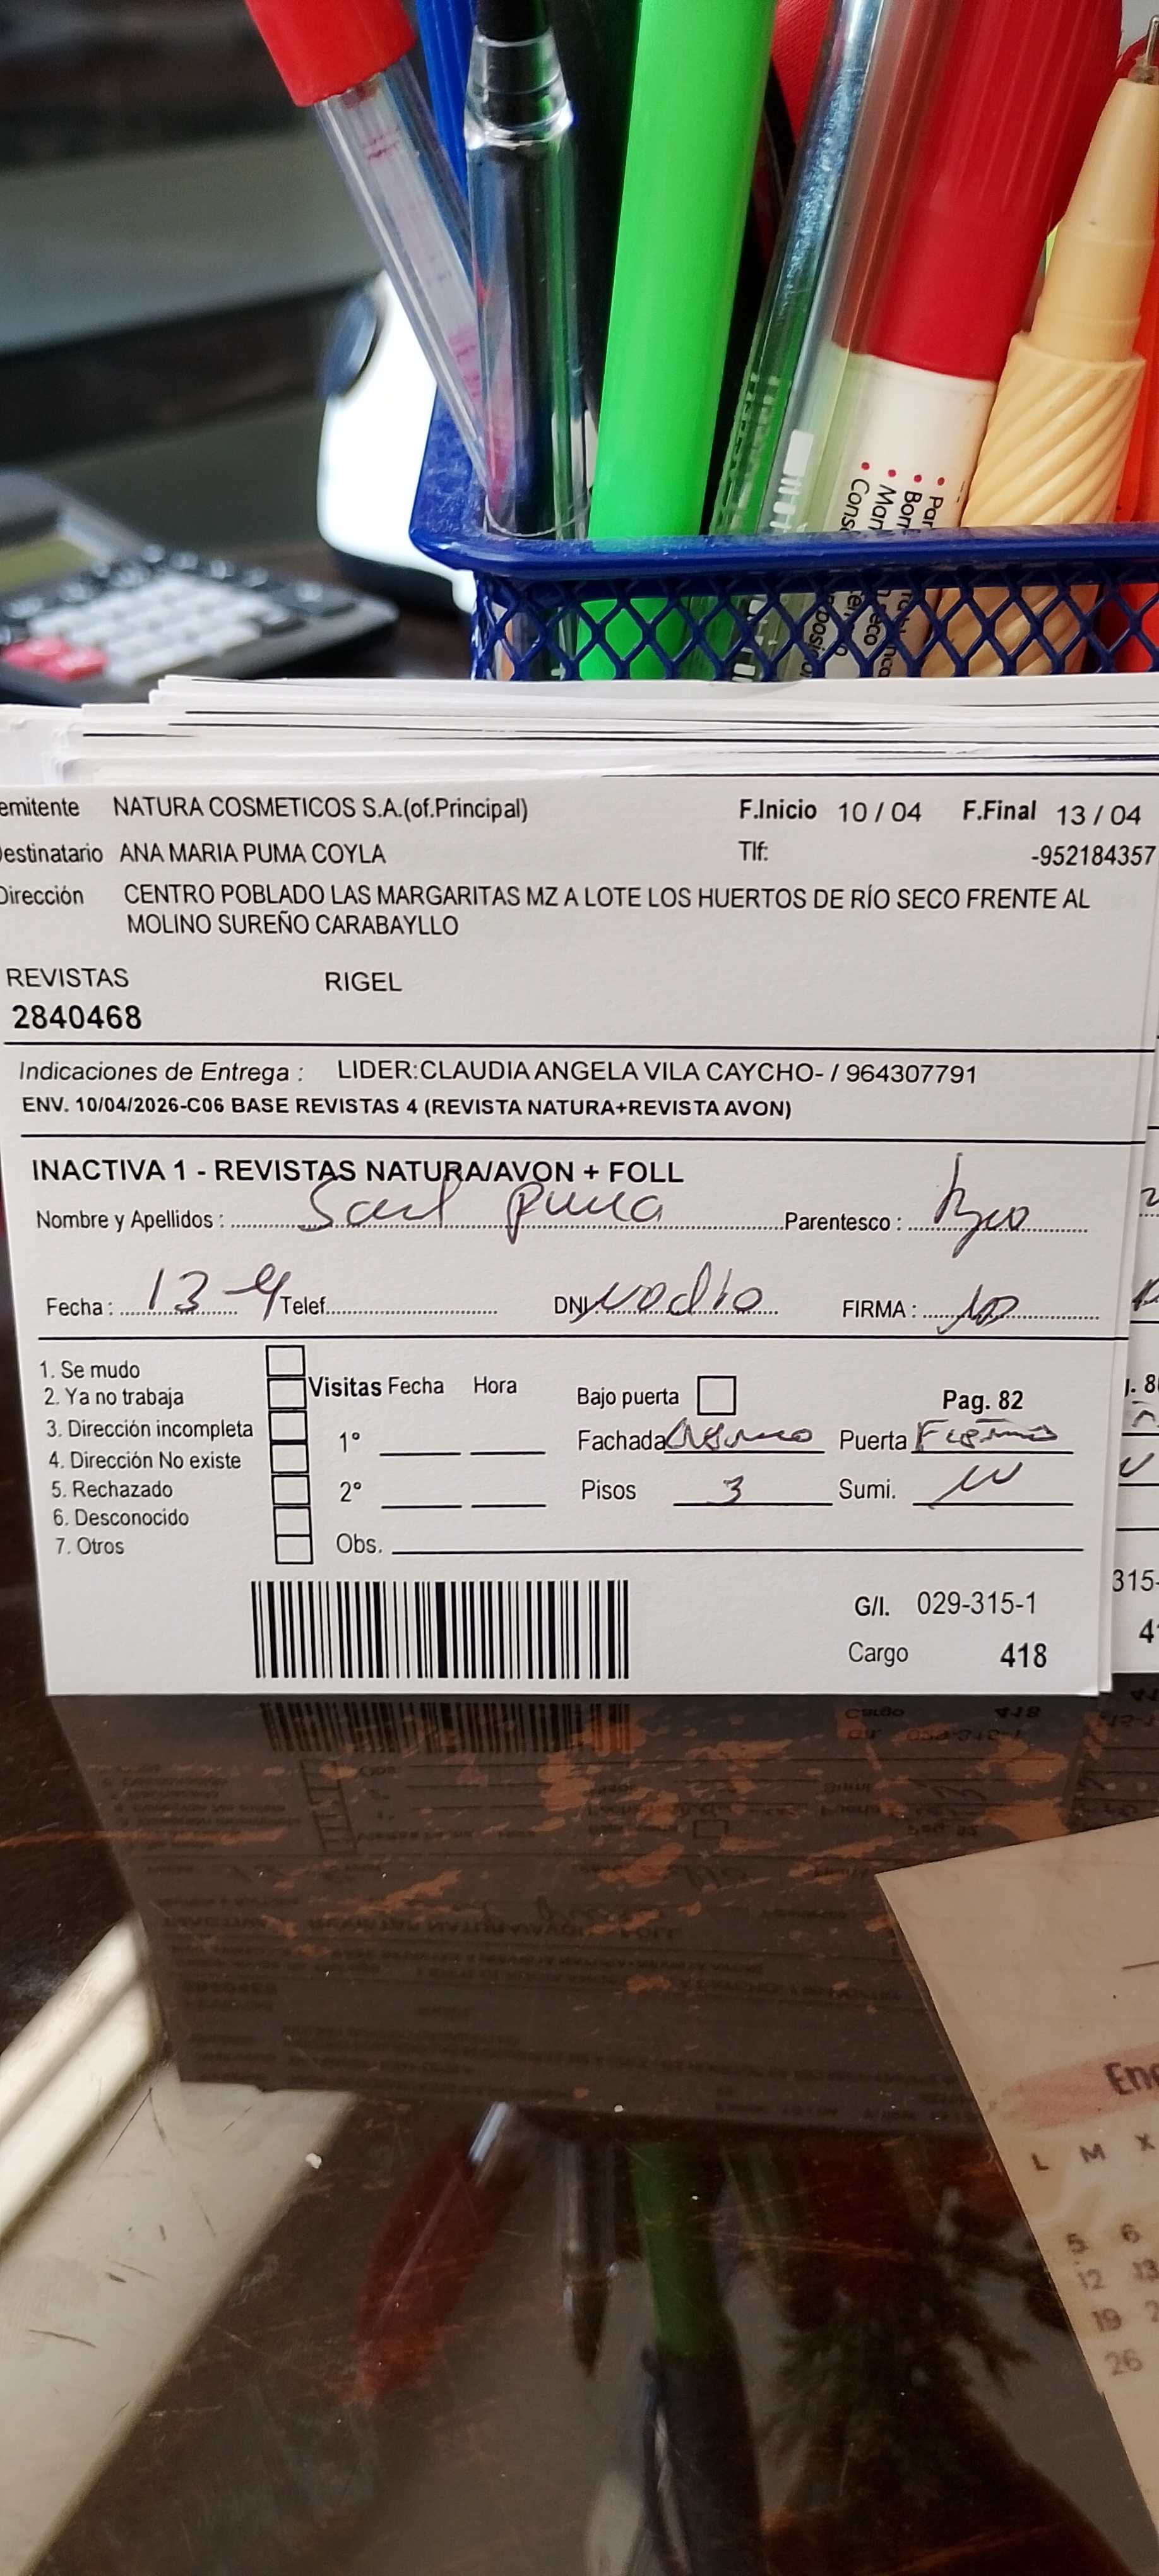 Par
Bor
Mar
Cons
emitente NATURA COSMETICOS S.A.(of.Principal) F.Inicio 10 / 04 F.Final 13 / 04
Destinatario ANA MARIA PUMA COYLA Tlf: -952184357
Dirección CENTRO POBLADO LAS MARGARITAS MZ A LOTE LOS HUERTOS DE RÍO SECO FRENTE AL
MOLINO SUREÑO CARABAYLLO
REVISTAS RIGEL
2840468
Indicaciones de Entrega : LIDER:CLAUDIA ANGELA VILA CAYCHO- / 964307791
ENV. 10/04/2026-C06 BASE REVISTAS 4 (REVISTA NATURA+REVISTA AVON)
INACTIVA 1 - REVISTAS NATURA/AVON + FOLL
Nombre y Apellidos : Saul Puma Parentesco :
Fecha : 13 4 Telef. DNI no dio FIRMA :
1. Se mudo
2. Ya no trabaja
3. Dirección incompleta
4. Dirección No existe
5. Rechazado
6. Desconocido
7. Otros
Visitas Fecha Hora
1°
2°
Obs.
Bajo puerta Pag. 82
Fachada Puerta
Pisos 3 Sumi.
G/I. 029-315-1
Cargo 418
315-
Ene
L M X
5 6
12 13
19 2
26